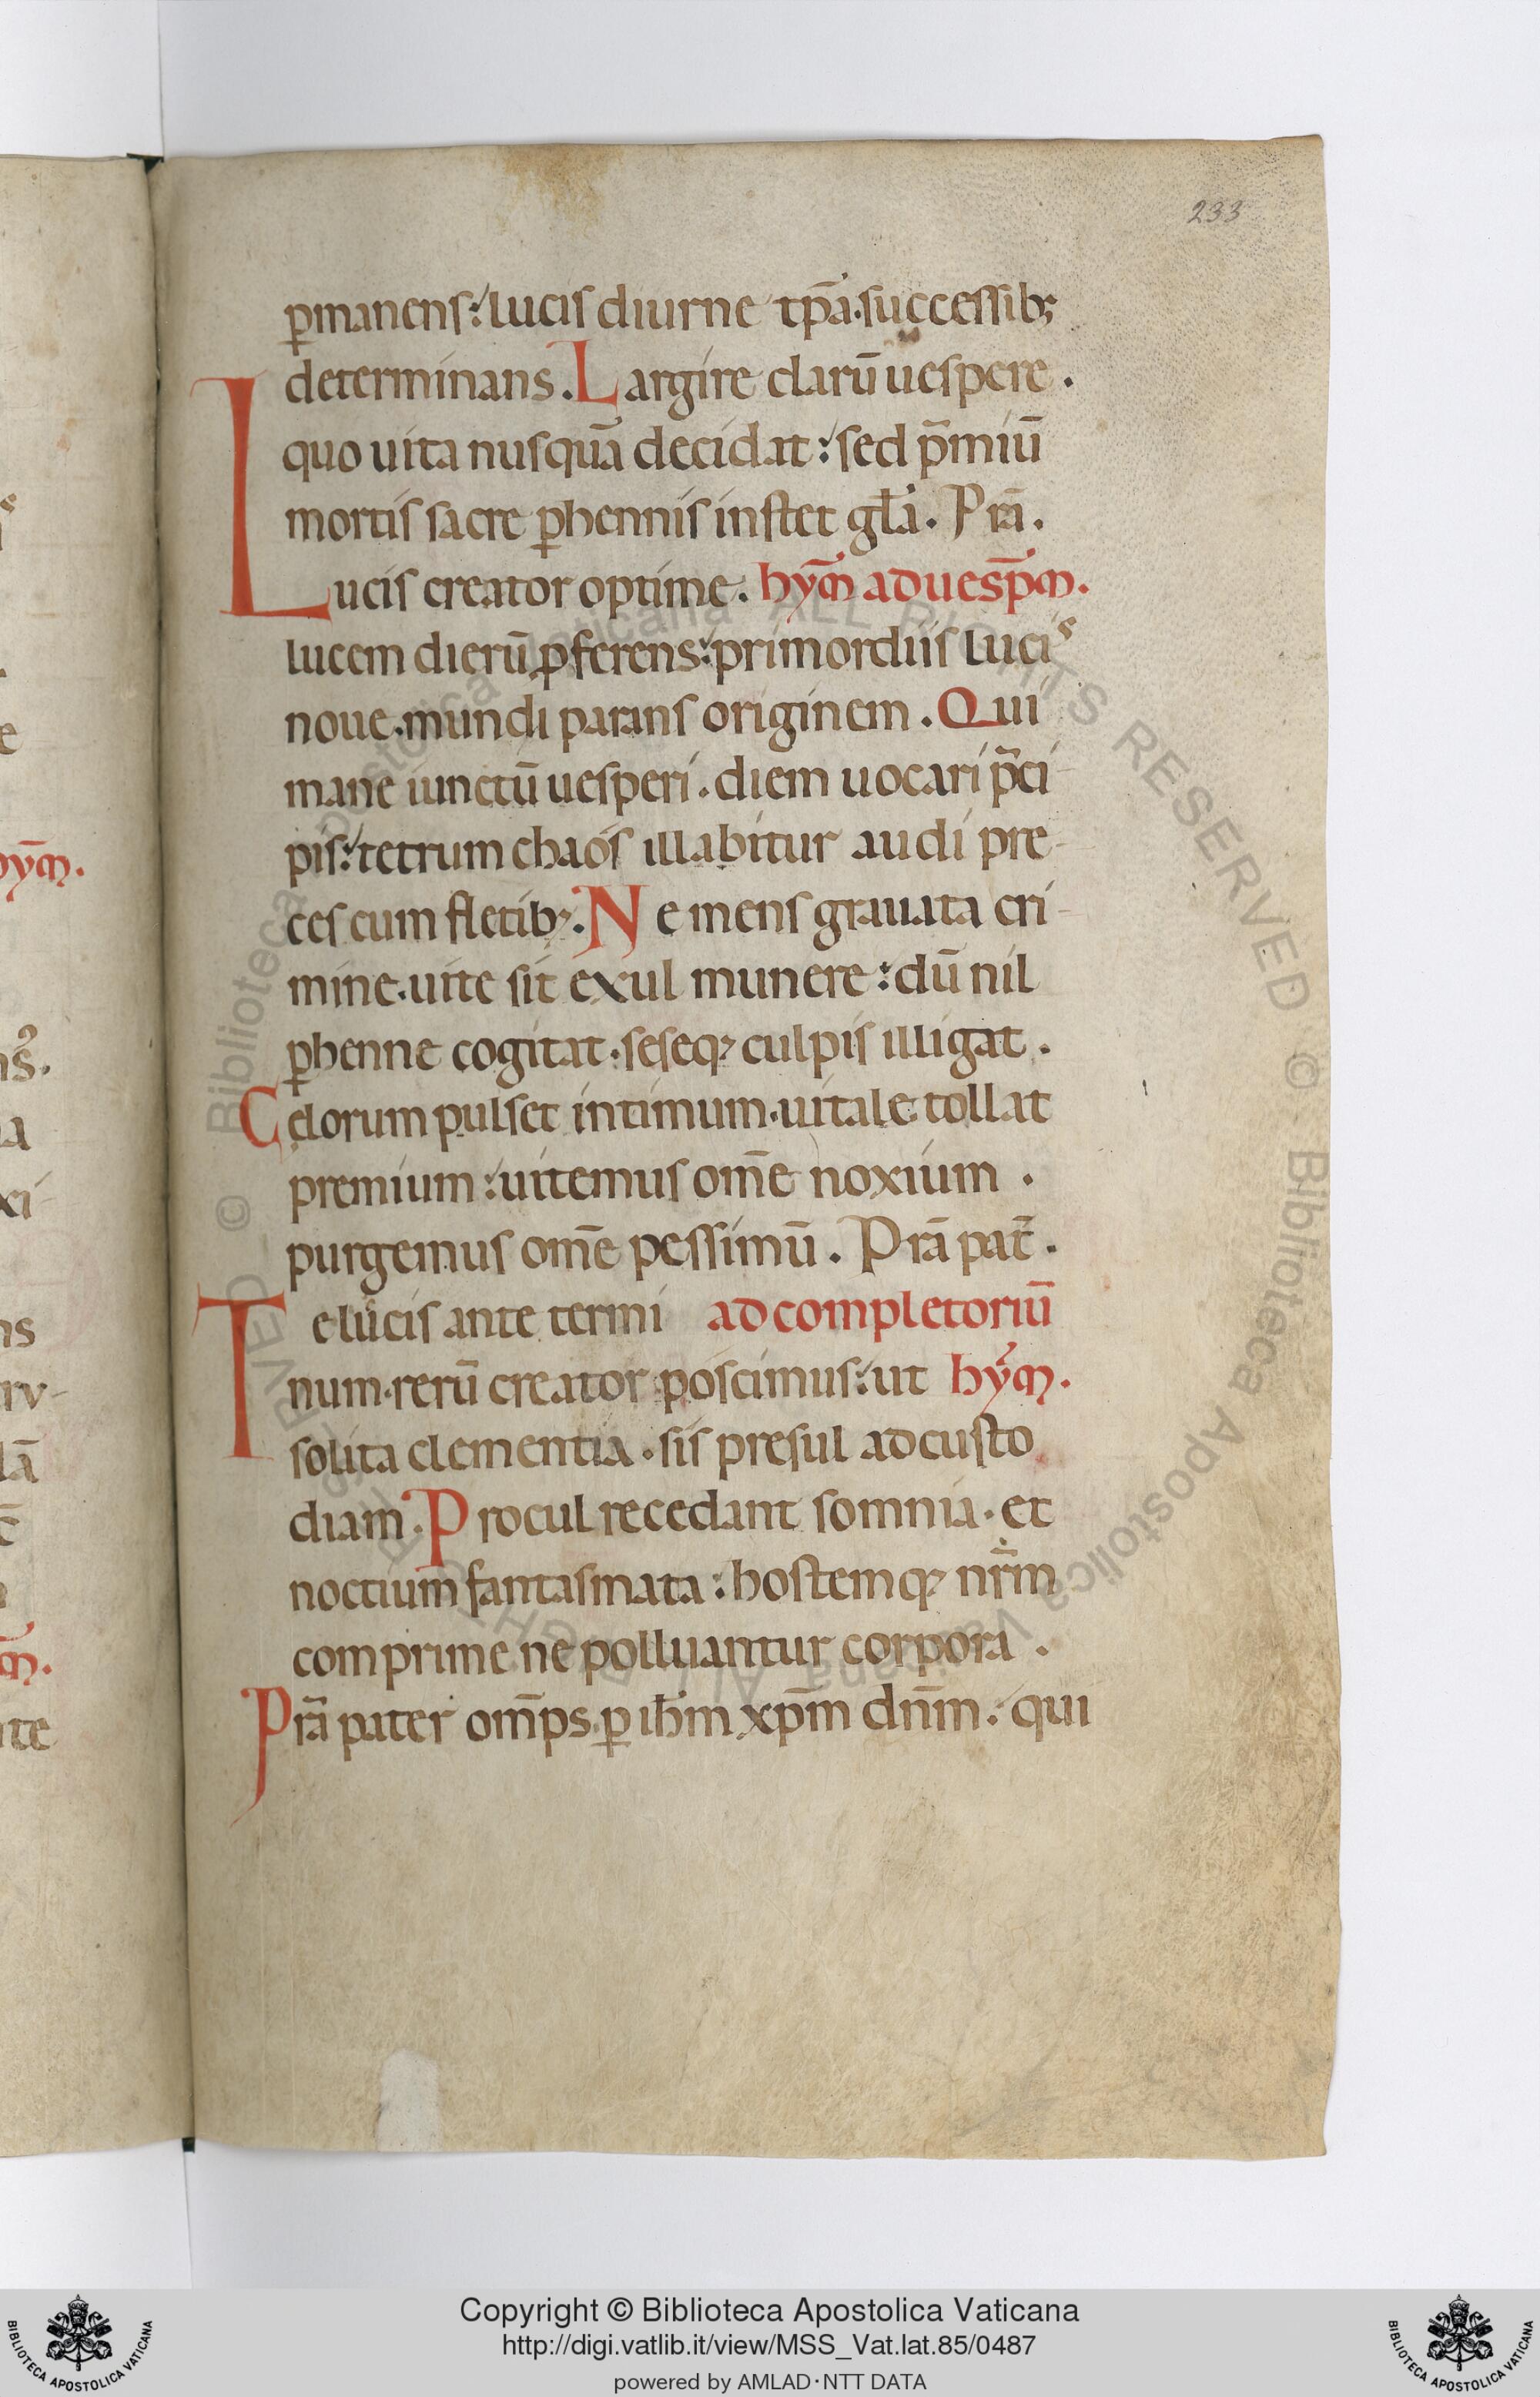 233
ꝑmanens: lucis diurne tp̄a. successib;
determinans. Largire clarū uespere.
quo uita nusquā decidat: sed p̄miū
mortis sacre ꝑhennis instet gl̄a. Prā.
Lucis creator optime. hym̄ ad uesp̄m.
lucem dierū ꝓferens: primordiis lucis
noue. mundi parans originem. Qui
mane iunctū uesperi. diem uocari p̄ci-
pis: tetrum chaos illabitur audi pre-
ces cum fletibꝫ. Ne mens grauata cri-
mine. uite sit exul munere: dū nil
ꝑhenne cogitat. seseqꝫ culpis illigat.
Celorum pulset intimum. uitale tollat
premium: uitemus om̄e noxium.
purgemus om̄e pessimū. Prā pat̄.
Te lucis ante termi ad completoriū
num. rerū creator poscimus: ut hym̄.
solita clementia. sis presul ad custo
diam. Procul recedant somnia. et
noctium fantasmata: hostemqꝫ nr̄m
comprime ne polluantur corpora.
Prā pater om̄ps. ꝑ ih̄m xp̄m dn̄m: qui
Copyright © Biblioteca Apostolica Vaticana
http://digi.vatlib.it/view/MSS_Vat.lat.85/0487
powered by AMLAD·NTT DATA
BIBLIOTECA APOSTOLICA VATICANA
BIBLIOTECA APOSTOLICA VATICANA